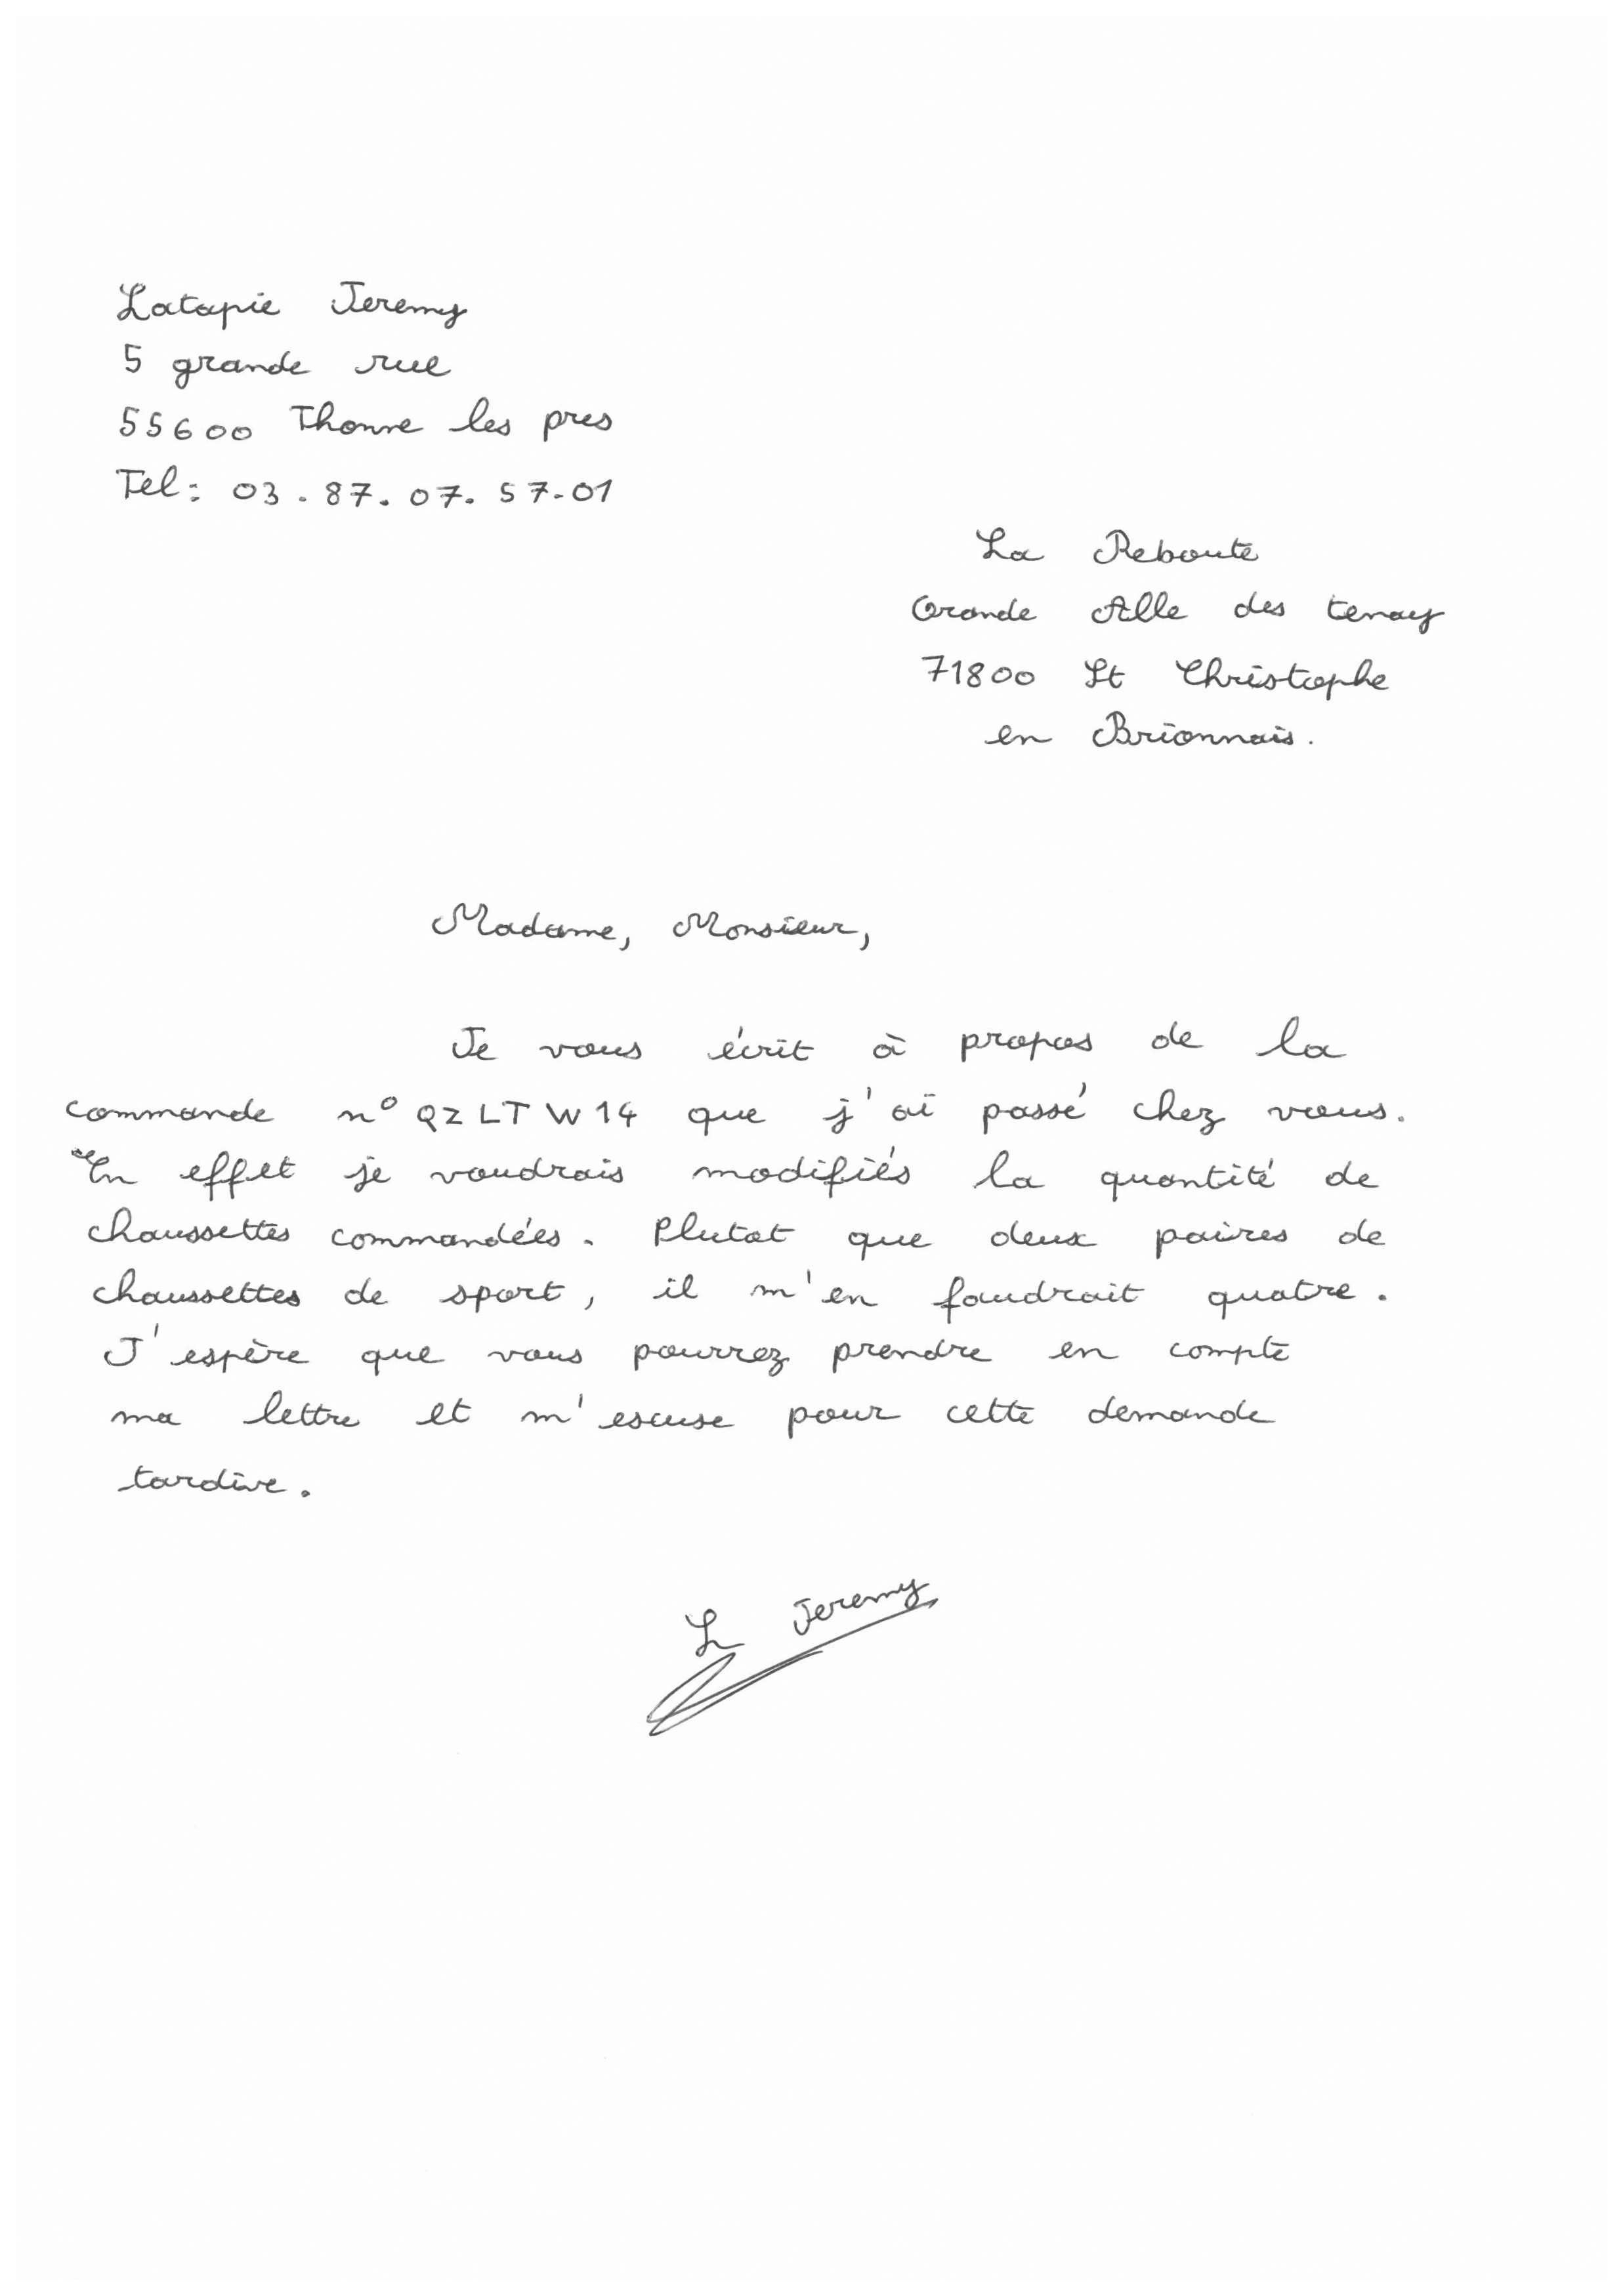 Latapie Jeremy
5 grande rue
55600 Thonne les pres
Tel : 03.87.07.57.01
La Reboute
Grande Alle des tenay
71800 St Christophe
en Brionnais.
Madame, Monsieur,
Je vous écrit à propos de la
commande n° QZLTW14 que j'ai passé chez vous.
En effet je voudrais modifiés la quantité de
chaussettes commandées. Plutot que deux paires de
chaussettes de sport, il m'en faudrait quatre.
J'espère que vous pourrez prendre en compte
ma lettre et m'escuse pour cette demande
tardive.
L Jeremy